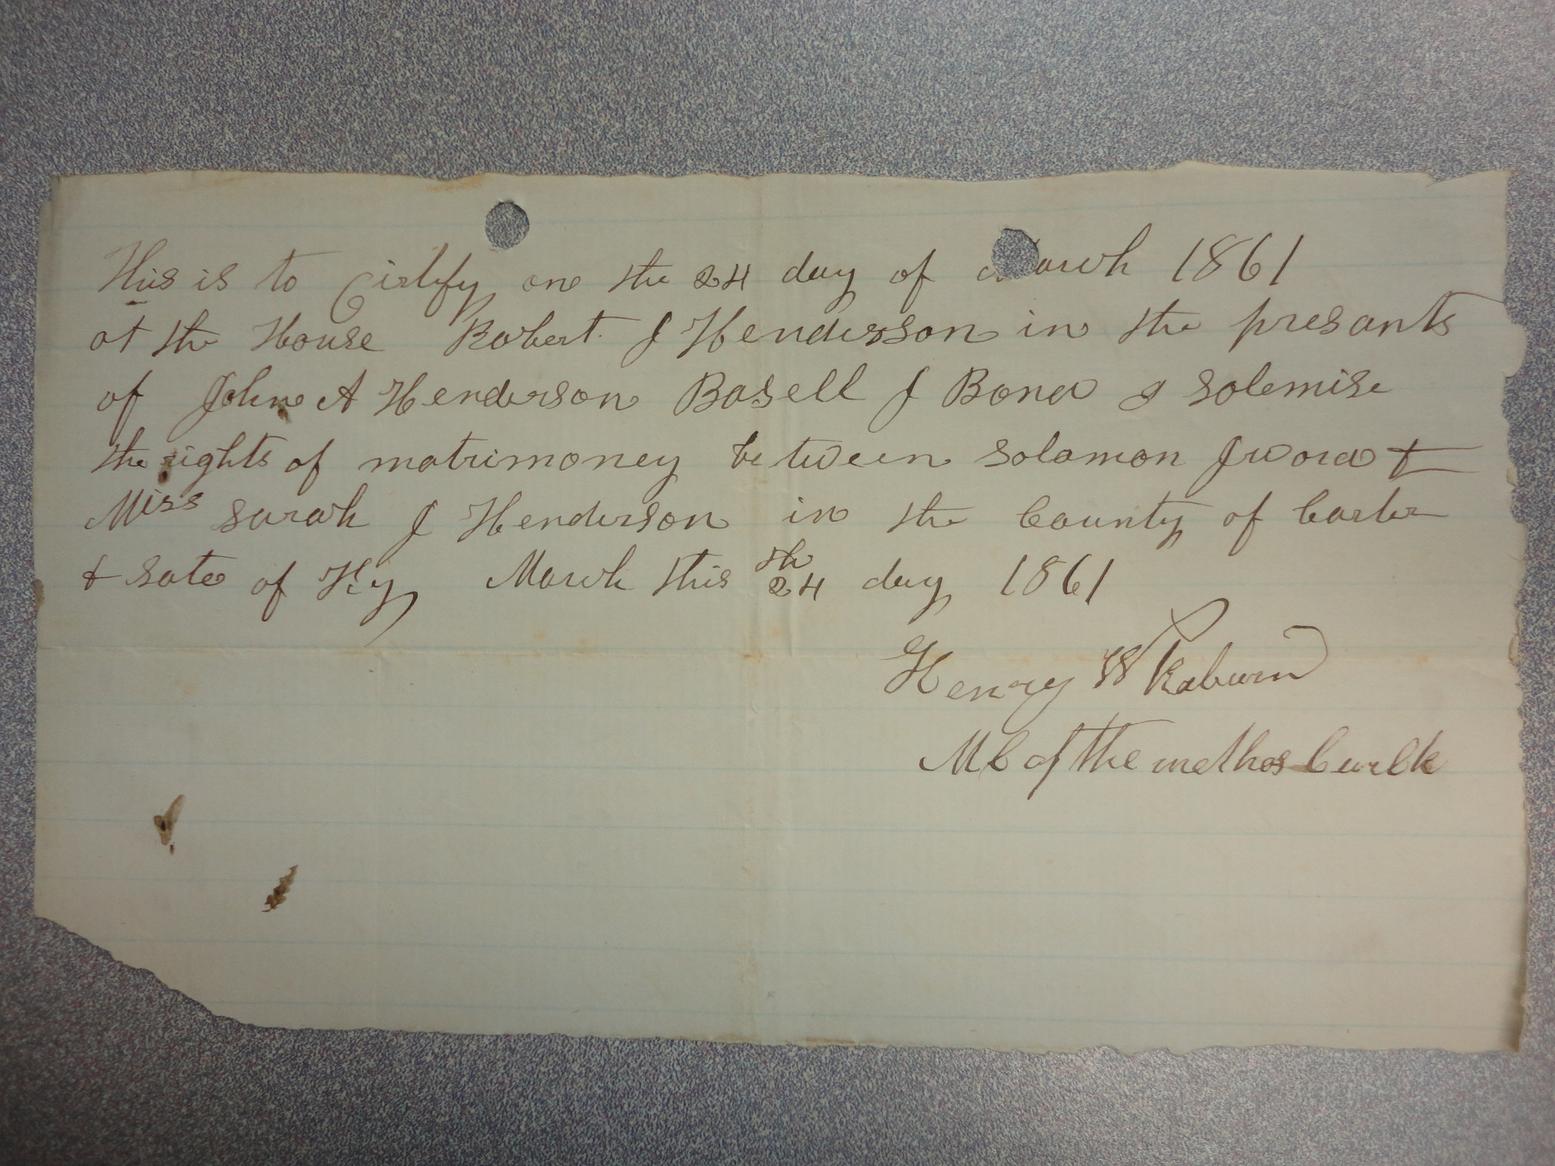 This is to Cirtify one the 24 day of March 1861
at the House Robert J Henderson in the presants
of John A Henderson Basell J Bond I Solemise
the rights of matrimoney between Solamon J Word &
Miss Sarah J Henderson in the County of Carter
& Sate of Ky March this 24th day 1861
Henry W Raburn
of the methos